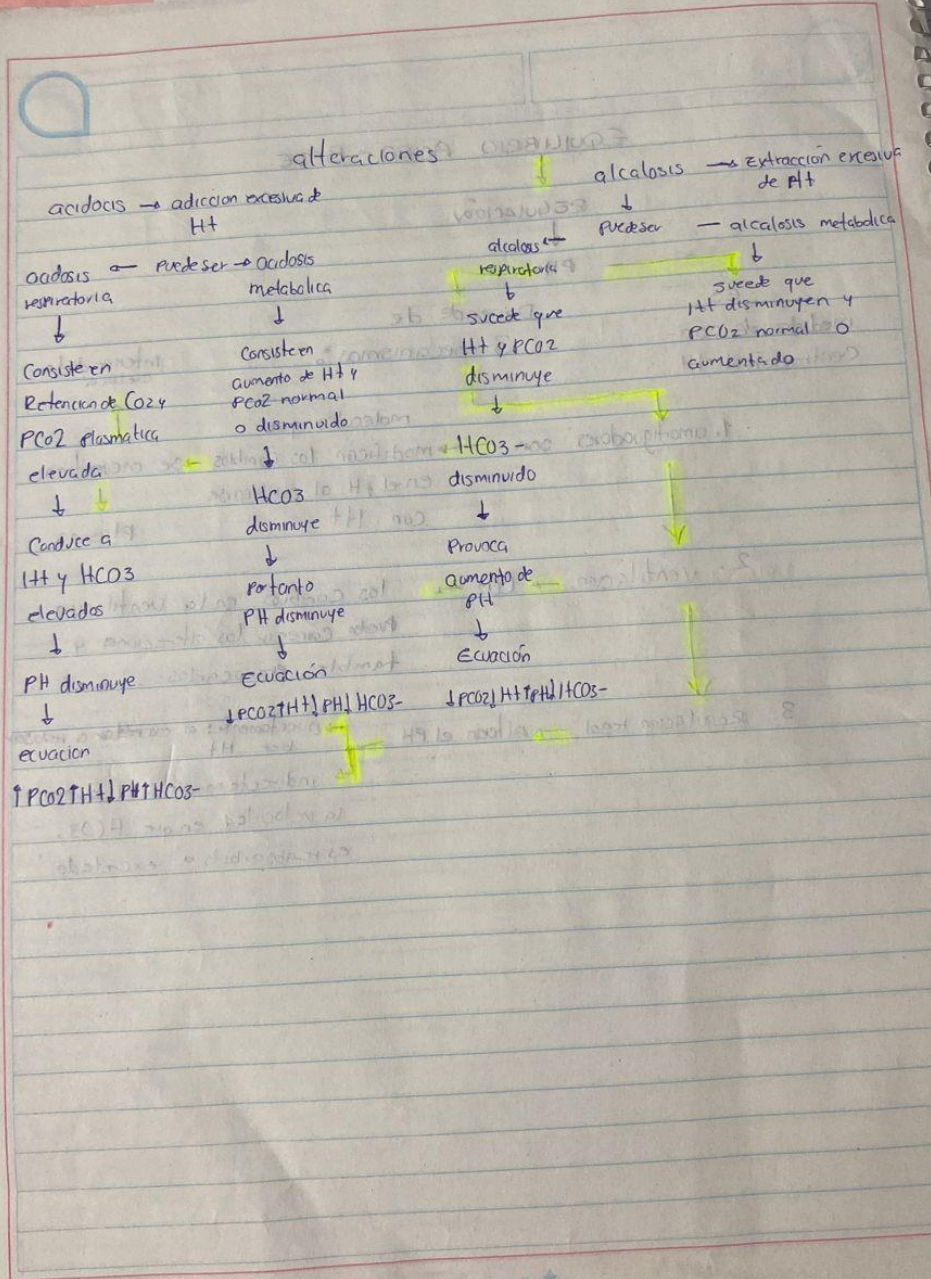 alteraciones
acidocis → adiccion excesiva de
H+
acidosis ← Puede ser → acidosis
respiratoria
metabolica
↓
↓
Consiste en
Retencion de CO2 y
PCO2 Plasmatica
elevada
↓
Conduce a
H+ y HCO3
elevados
↓
PH disminuye
↓
ecuacion
↑PCO2↑H+↓PH↑HCO3-
Consiste en
aumento de H+ y
PCO2 normal
o disminuido
↓
HCO3
disminuye
↓
Por tanto
PH disminuye
↓
Ecuación
↓PCO2↑H+↓PH↓HCO3-
alcalosis → Extracción excesiva
de H+
↓
Puede ser — alcalosis metabolica
alcalosis ←
respiratoria
↓
sucede que
H+ y PCO2
disminuye
↓
HCO3-
disminuido
↓
Provoca
aumento de
PH
↓
Ecuación
↓PCO2↓H+↑PH↓HCO3-
↓
sucede que
H+ disminuyen y
PCO2 normal o
aumentado